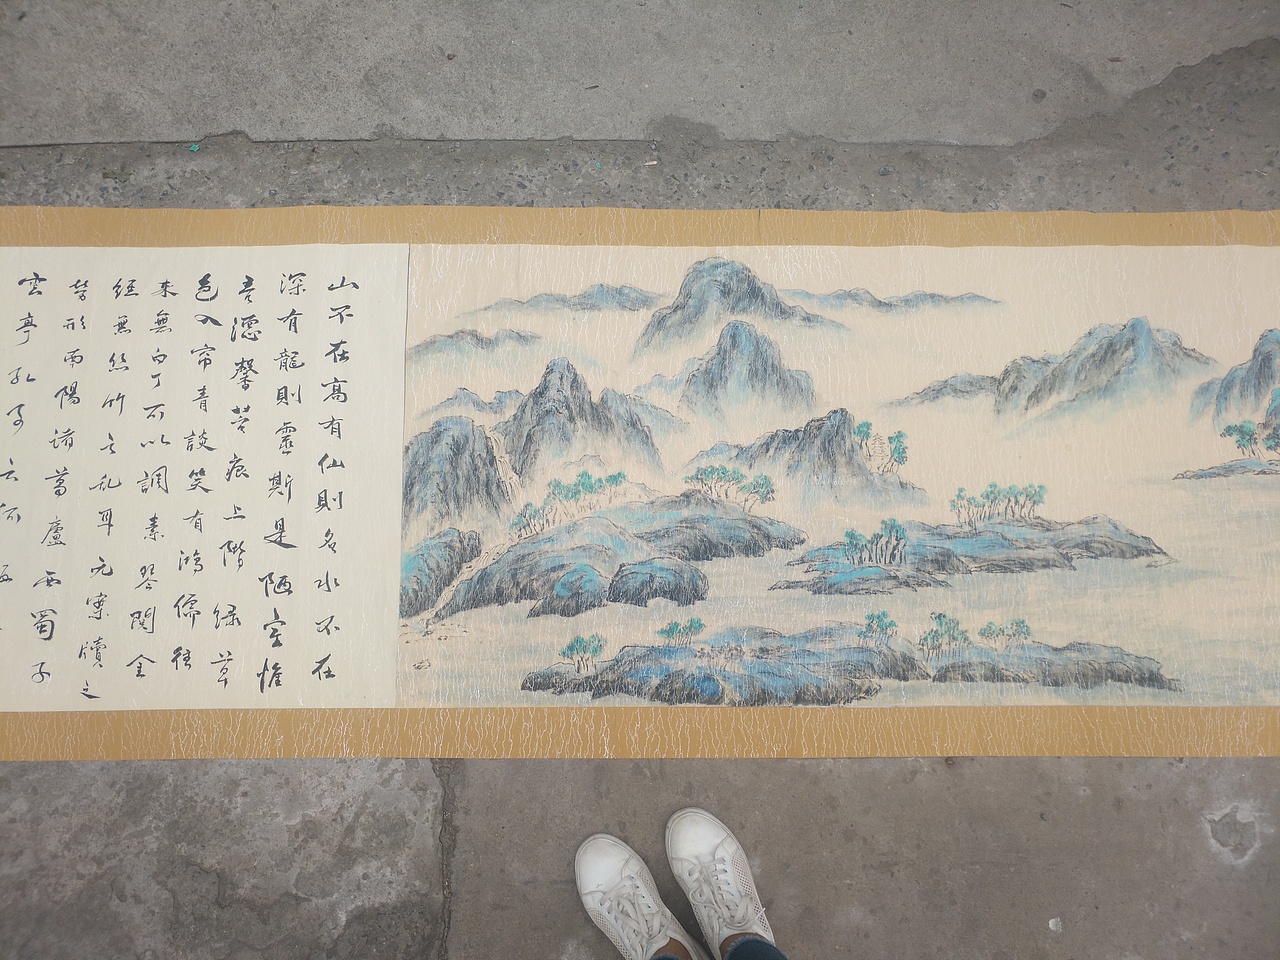 山不在高有仙則名水不在
深有龍則靈斯是陋室惟
吾德馨苔痕上階緑草
色入帘青談笑有鴻儒往
來無白丁可以調素琴閱金
經無絲竹之乱耳无案牘之
勞形南陽諸葛廬西蜀子
雲亭孔子云何